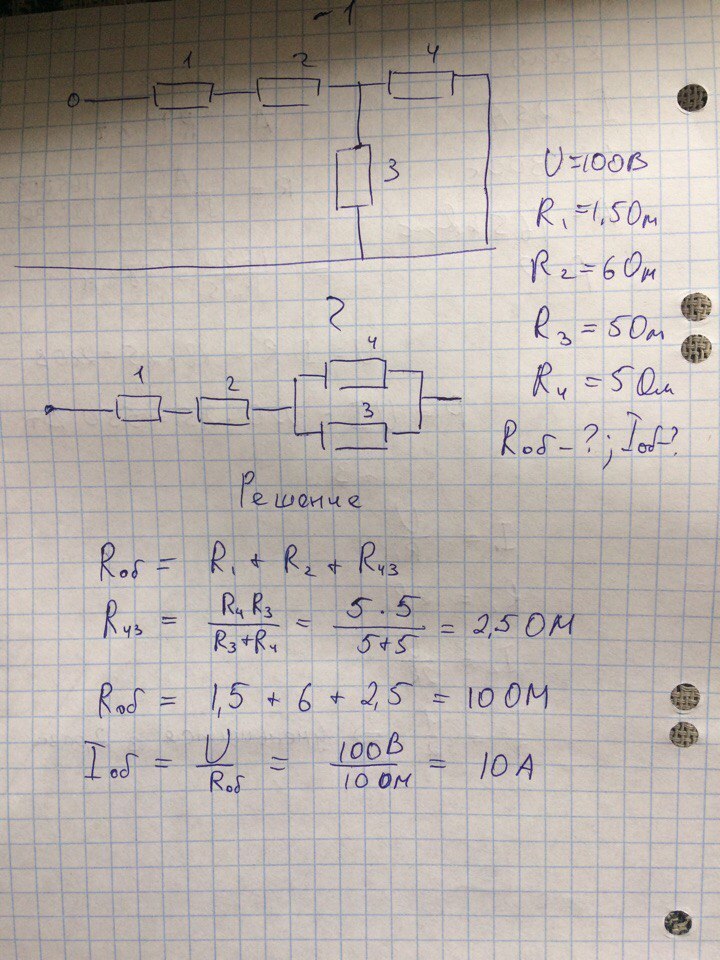 -1
1 2 4
3
U=100В
R₁=1,5Ом
R₂=6Ом
R₃=5Ом
R₄=5Ом
Rоб-?; Iоб-?
4
1 2
3
Решение
Rоб = R₁ + R₂ + R₄₃
R₄₃ = R₄R₃/R₃+R₄ = 5·5/5+5 = 2,5 ОМ
Rоб = 1,5 + 6 + 2,5 = 10 ОМ
Iоб = U/Rоб = 100В/10 ОМ = 10 А